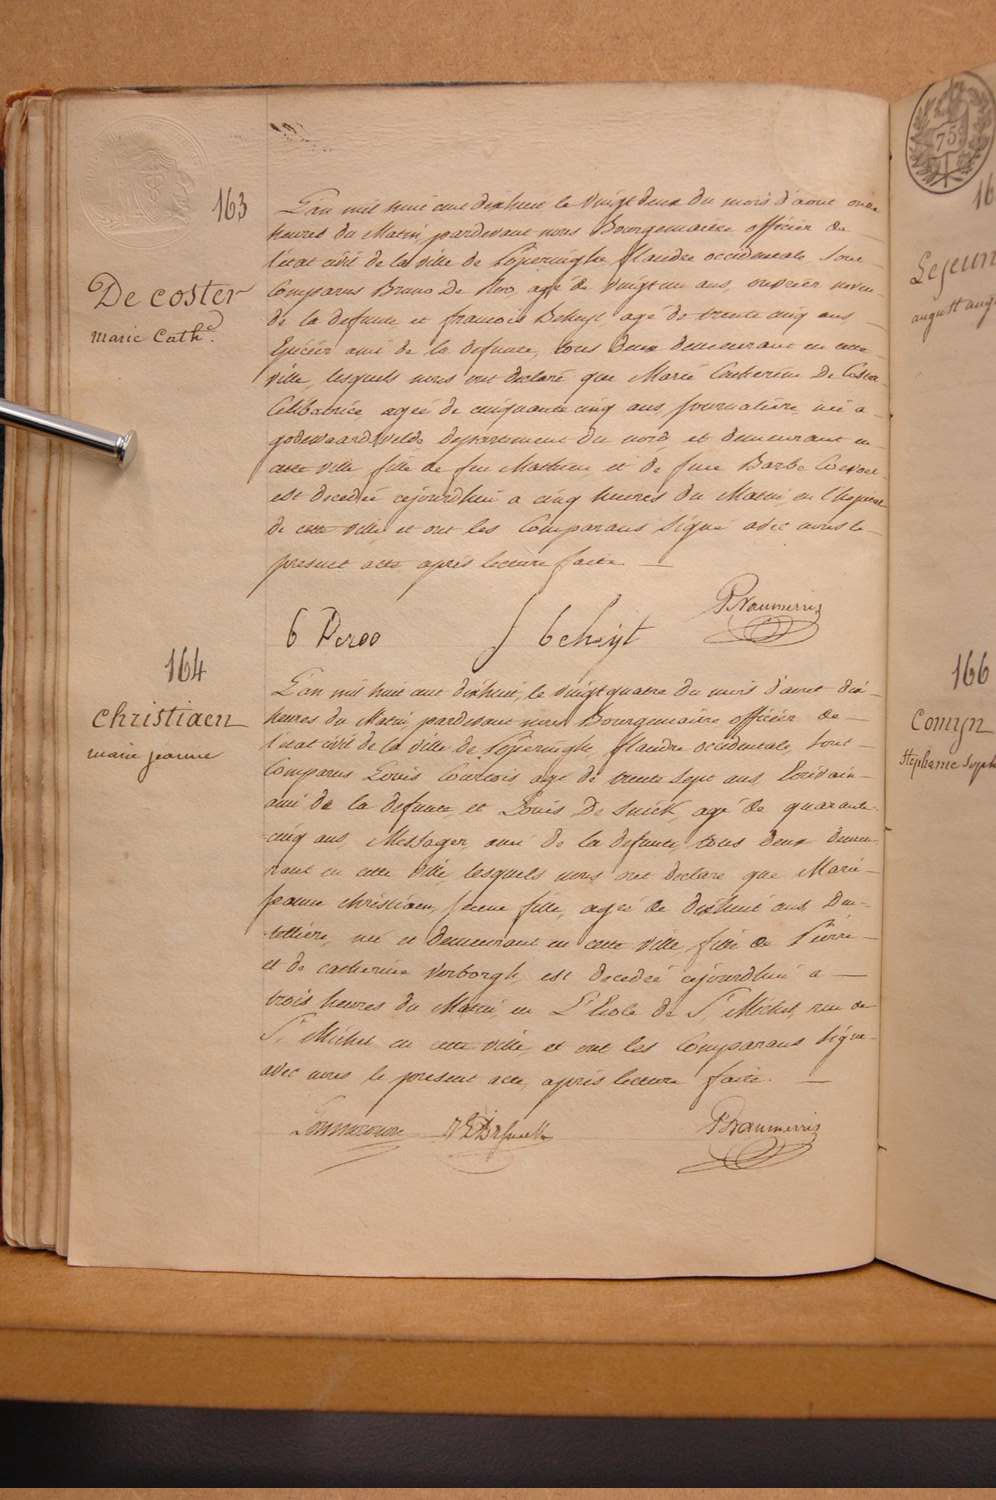 163
De coster
Marie Cath.
L'an mil huit cent dixhuit le vingt deux du mois d'aout onze
heures du Matin, pardevant nous Bourgemaitre officier de
l'etat civil de la ville de Poperinghe flandre occidentale sont
Comparus Bruno De Roo agé de vingt un ans, ouvrier neveu
de la defunte, et francois Beheyt agé de trente cinq ans
Epicier ami de la defunte, tous deux demeurant en cette
ville, lesquels nous ont declaré que Marie Catherine De Coster
Celibatrice agée de cinquante cinq ans, journalière née a
godewaardsvelde departement du nord et demeurant en
cette ville fille de feu Mathieu et de feue Barbe
est decedée cejourdhui a cinq heures du Matin, en l'hopital
de cette ville et ont les Comparans Signé avec nous le
present acte après lecture faite
6 Deroo
f 6eheyt
164
christiaen
marie jeanne
L'an mil huit cent dixhuit, le vingt quatre du mois d'aout dix
heures du Matin pardevant nous Bourgemaitre officier de
l'etat civil de la ville de Poperinghe, flandre occidentale, sont
Comparus Louis Courtois, agé de trente sept ans, Ecrivain
ami de la defunte, et Louis De Snick, agé de quarante
cinq ans, Messager, ami de la defunte, tous deux demeu-
rant en cette ville, lesquels nous ont declaré que Marie
jeanne christiaen, jeune fille, agée de dixhuit ans, Den-
tellière, née et demeurant en cette ville fille de Pierre
et de catherine Verborgh, est decedée cejourdhui a
trois heures du Matin, en L'Ecole de St Michel, rue de
St Michel en cette ville et ont les Comparans Signé
avec nous le present acte, après lecture faite.
75
16
Lejeun
august aug
166
Comyn
Stephanie Soph